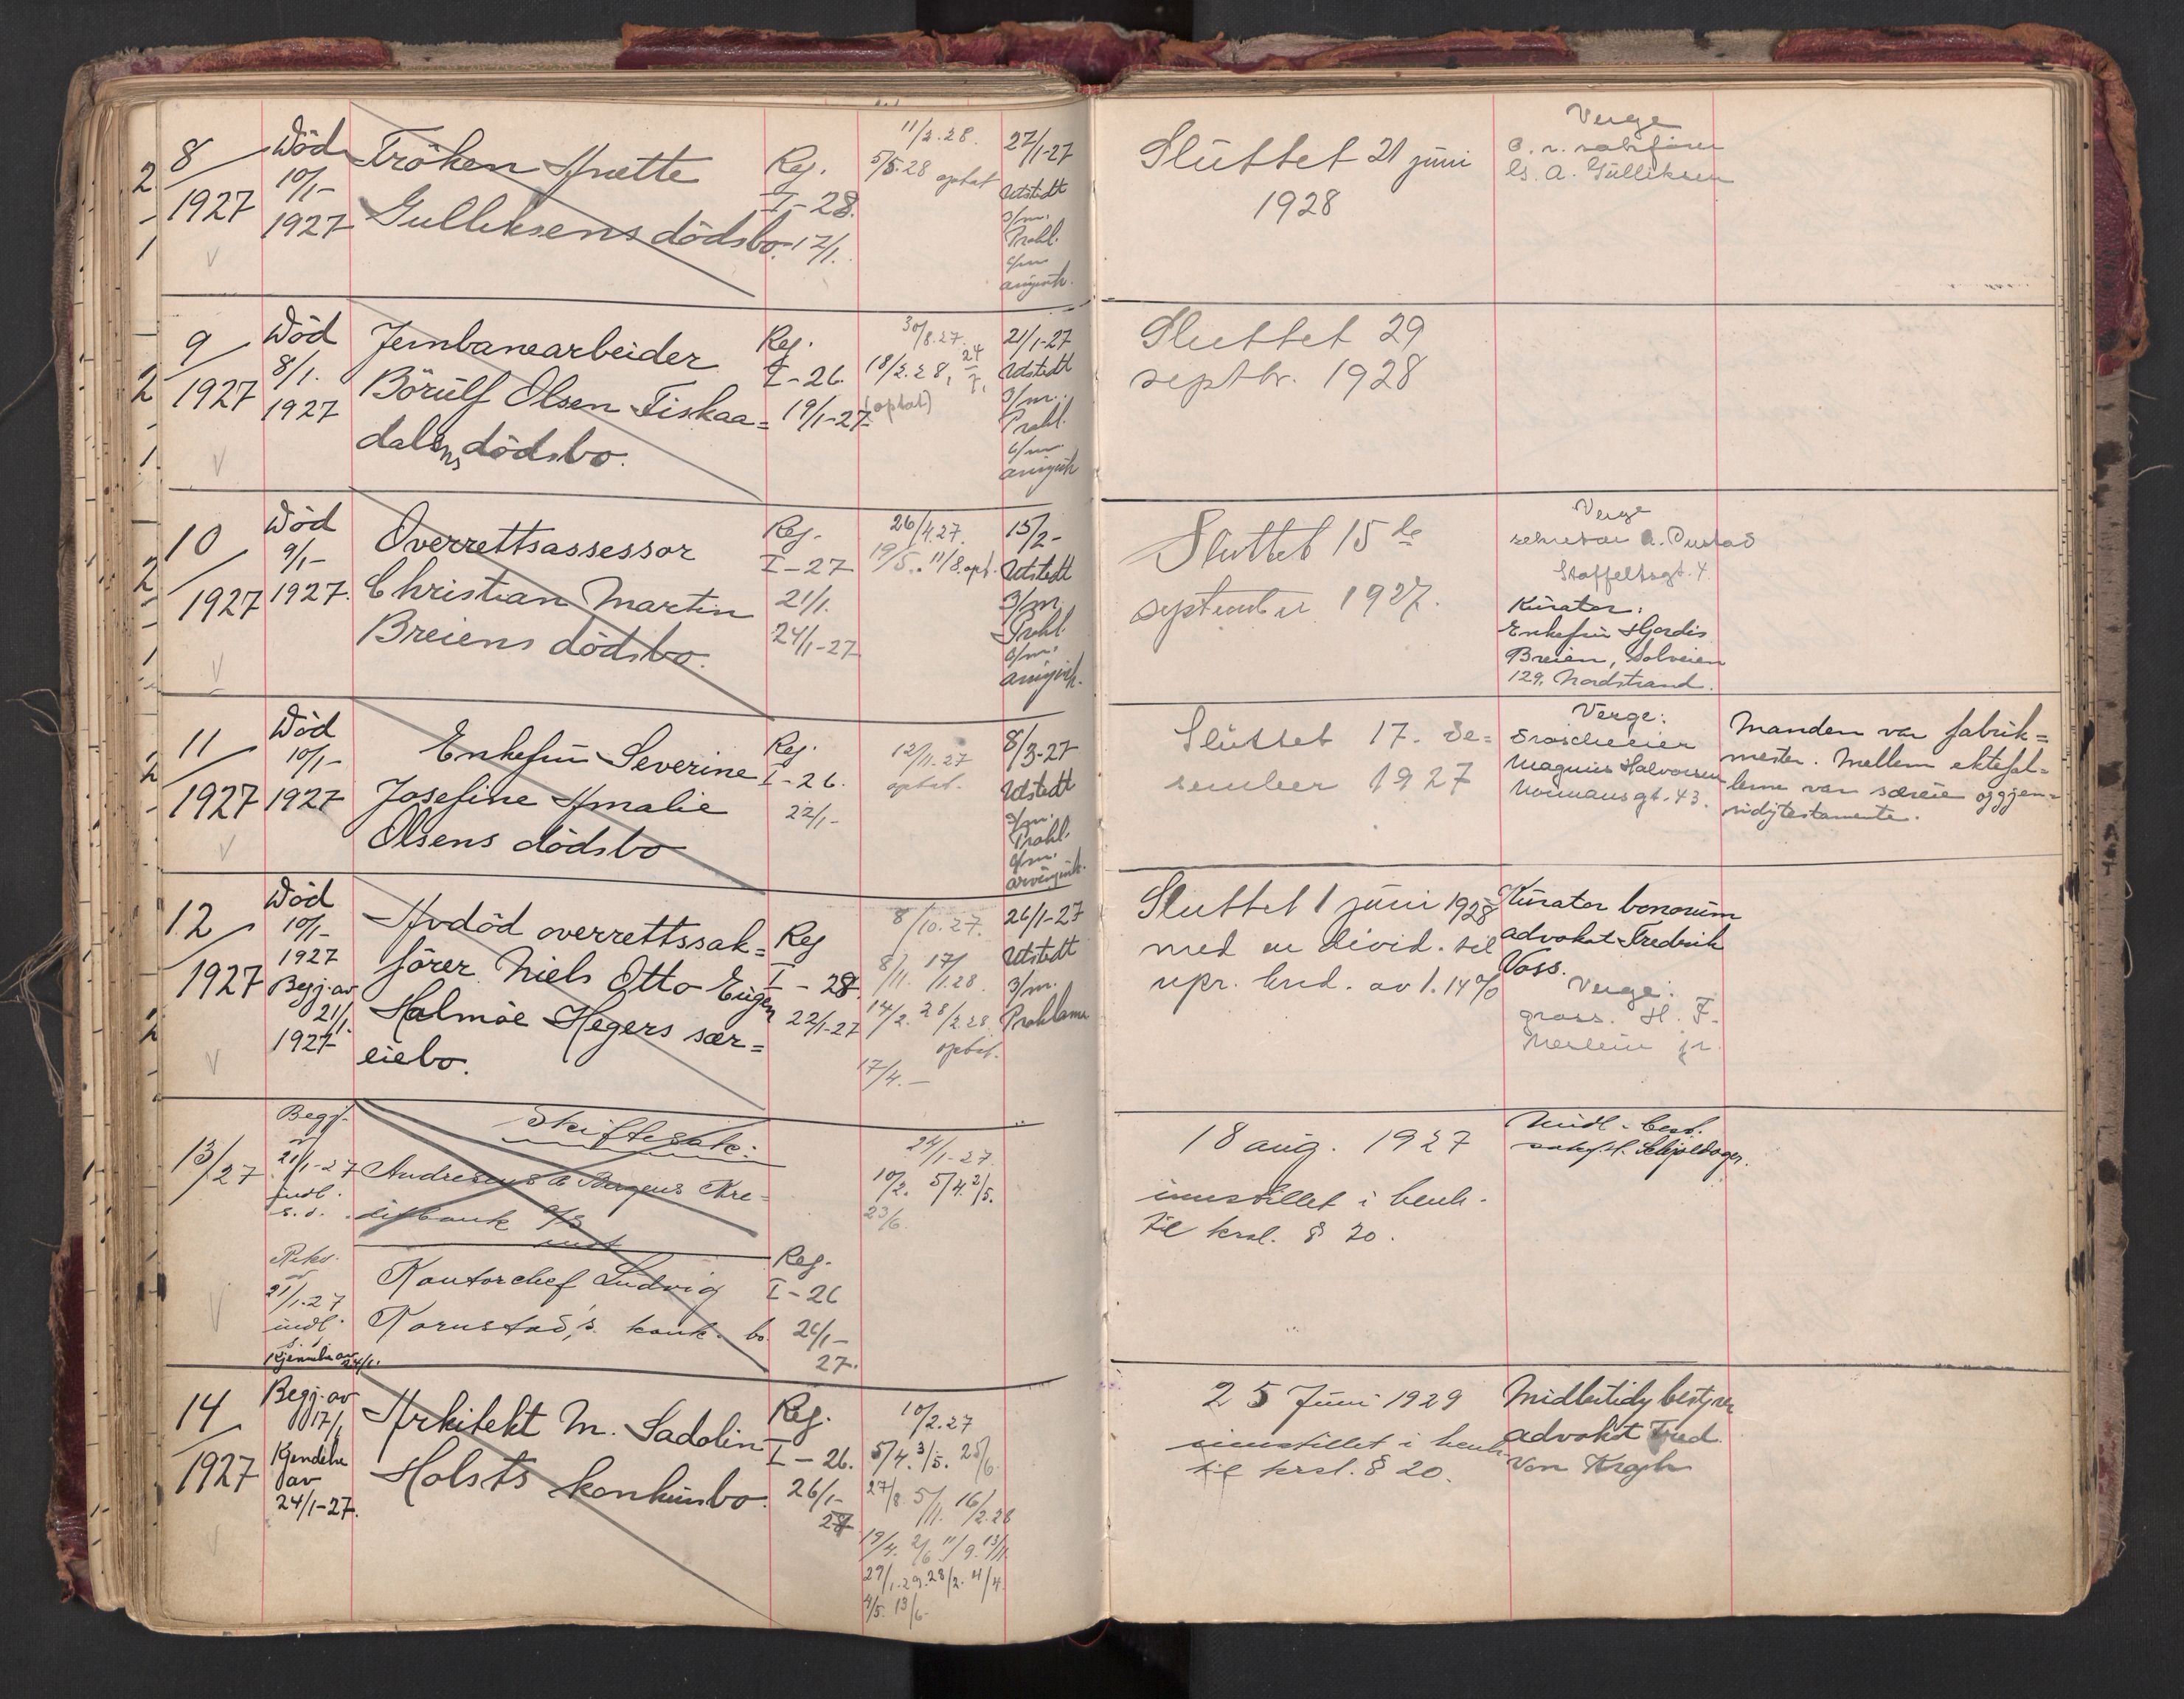 8/1927
Död
10/1-
1927
Fröken Anette
Gulliksens dödsbo.
Reg.
I-28.
12/1.
11/2.28.
5/5.28 ophat
27/1-27
Utstedt
3/m.
Prokl.
Sluttet 21 juni
1928
Verge
o.r. sakfører
A. Gulliksen
9/1927
Död
8/1.
1927
Jernbanearbeider
Börulf Olsen Fiskaa=
dalens dödsbo.
Reg.
I-26.
19/1-27
30/8.27.
18/2.28, 24/7,
(ophat)
21/1-27
Utstedt
3/m.
Prokl.
6/m.
Sluttet 29
septbr. 1928
10/1927
Död
9/1-
1927.
Overrettsassessor
Christian Martin
Breiens dödsbo.
Reg.
I-27
21/1.
24/1-27
26/4.27.
19/5. 11/8. oph.
15/2-
Utstedt
3/m.
Prokl.
6/m.
Sluttet 15de
september 1927.
Verge
sekretær A.
Stoffelsgt. 4.
Kurator:
Enkefru Hjordis
Breien, Solveien
129, Nordstrand.
11/1927
Död
10/1-
1927
Enkefru Severine
Josefine Amalie
Olsens dödsbo
Reg.
I-26.
22/1-
12/11.27
ophat.
8/3-27
Utstedt
3/m.
Prokl.
6/m.
Sluttet 17. de=
sember 1927
Verge:
Droscheeier
Magnus Halvorsen
Normansgt. 43.
Manden var fabrik=
mester. Mellem ektefol=
kene var særeie og gjen=
sidig testamente.
12/1927
Död
10/1-
1927
Begj. av
21/1.
1927
Avdöd overrettssak=
förer Niels Otto Eugen
Holmöe Hegers sær=
eiebo.
Reg
I-28.
22/1-27
8/10.27.
8/11. 17/1.28.
14/2. 28/2.28
ophat.
17/4.-
26/1-27
Utstedt
3/m.
Proklama
Sluttet 1 juni 1928
med en divid. til
upr. kred. av 1.14%
Kurator bonorum
advokat Fredrik
Voss.
Verge:
gross. H. F.
jr.
13/27
Begj.
21/1-27
indl.
s. d.
Skiftesak:
Andresens & Bergens Kre-
ditbank A/S
mot
24/1-27.
10/2. 5/4. 3/5.
23/6.
Reks.
av
21/1.27
indl.
s. d.
Kjennelse av
24/1.
Kontorchef Ludvig
Kornstad's konk. bo.
Reg.
I-26
26/1-
27.
18 aug. 1927
innstillet i henh.
til krsl. § 20.
Midl. best.
sakf. H.
14/1927
Begj. av
17/1
Kjendelse
av
24/1-27.
Arkitekt M. Sadolin
Holsts konkursbo.
Reg.
I-26.
26/1-
27
10/2.27
5/4. 3/5. 25/6.
27/8. 5/11. 16/2.28
19/4. 2/6. 11/9. 13/11.
29/1.29. 28/2. 4/4.
4/5. 13/6-
25 Juni 1929
innstillet i henh.
til krsl. § 20.
Midlertidig bestyrer
advokat Fred.
von Krogh